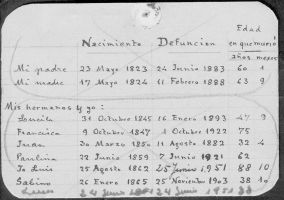 Edad
Nacimiento Defuncion en que murió
años meses
Mi padre 23 Mayo 1823 24 Junio 1883 60 1
Mi madre 17 Mayo 1824 11 Febrero 1888 63 9
Mis hermanos y yo:
31 Octubre 1845 16 Enero 1893 47 9
Francisca 9 Octubre 1847 1 Octubre 1922 75
Juan 30 Marzo 1850 11 Agosto 1882 32 4
Paulina 22 Junio 1859 7 Junio 1921 62
Yo Luis 25 Agosto 1862 25 Junio 1951 88 10
Sabino 26 Enero 1865 25 Noviembre 1903 38 10
24 Junio 24 Junio 1951